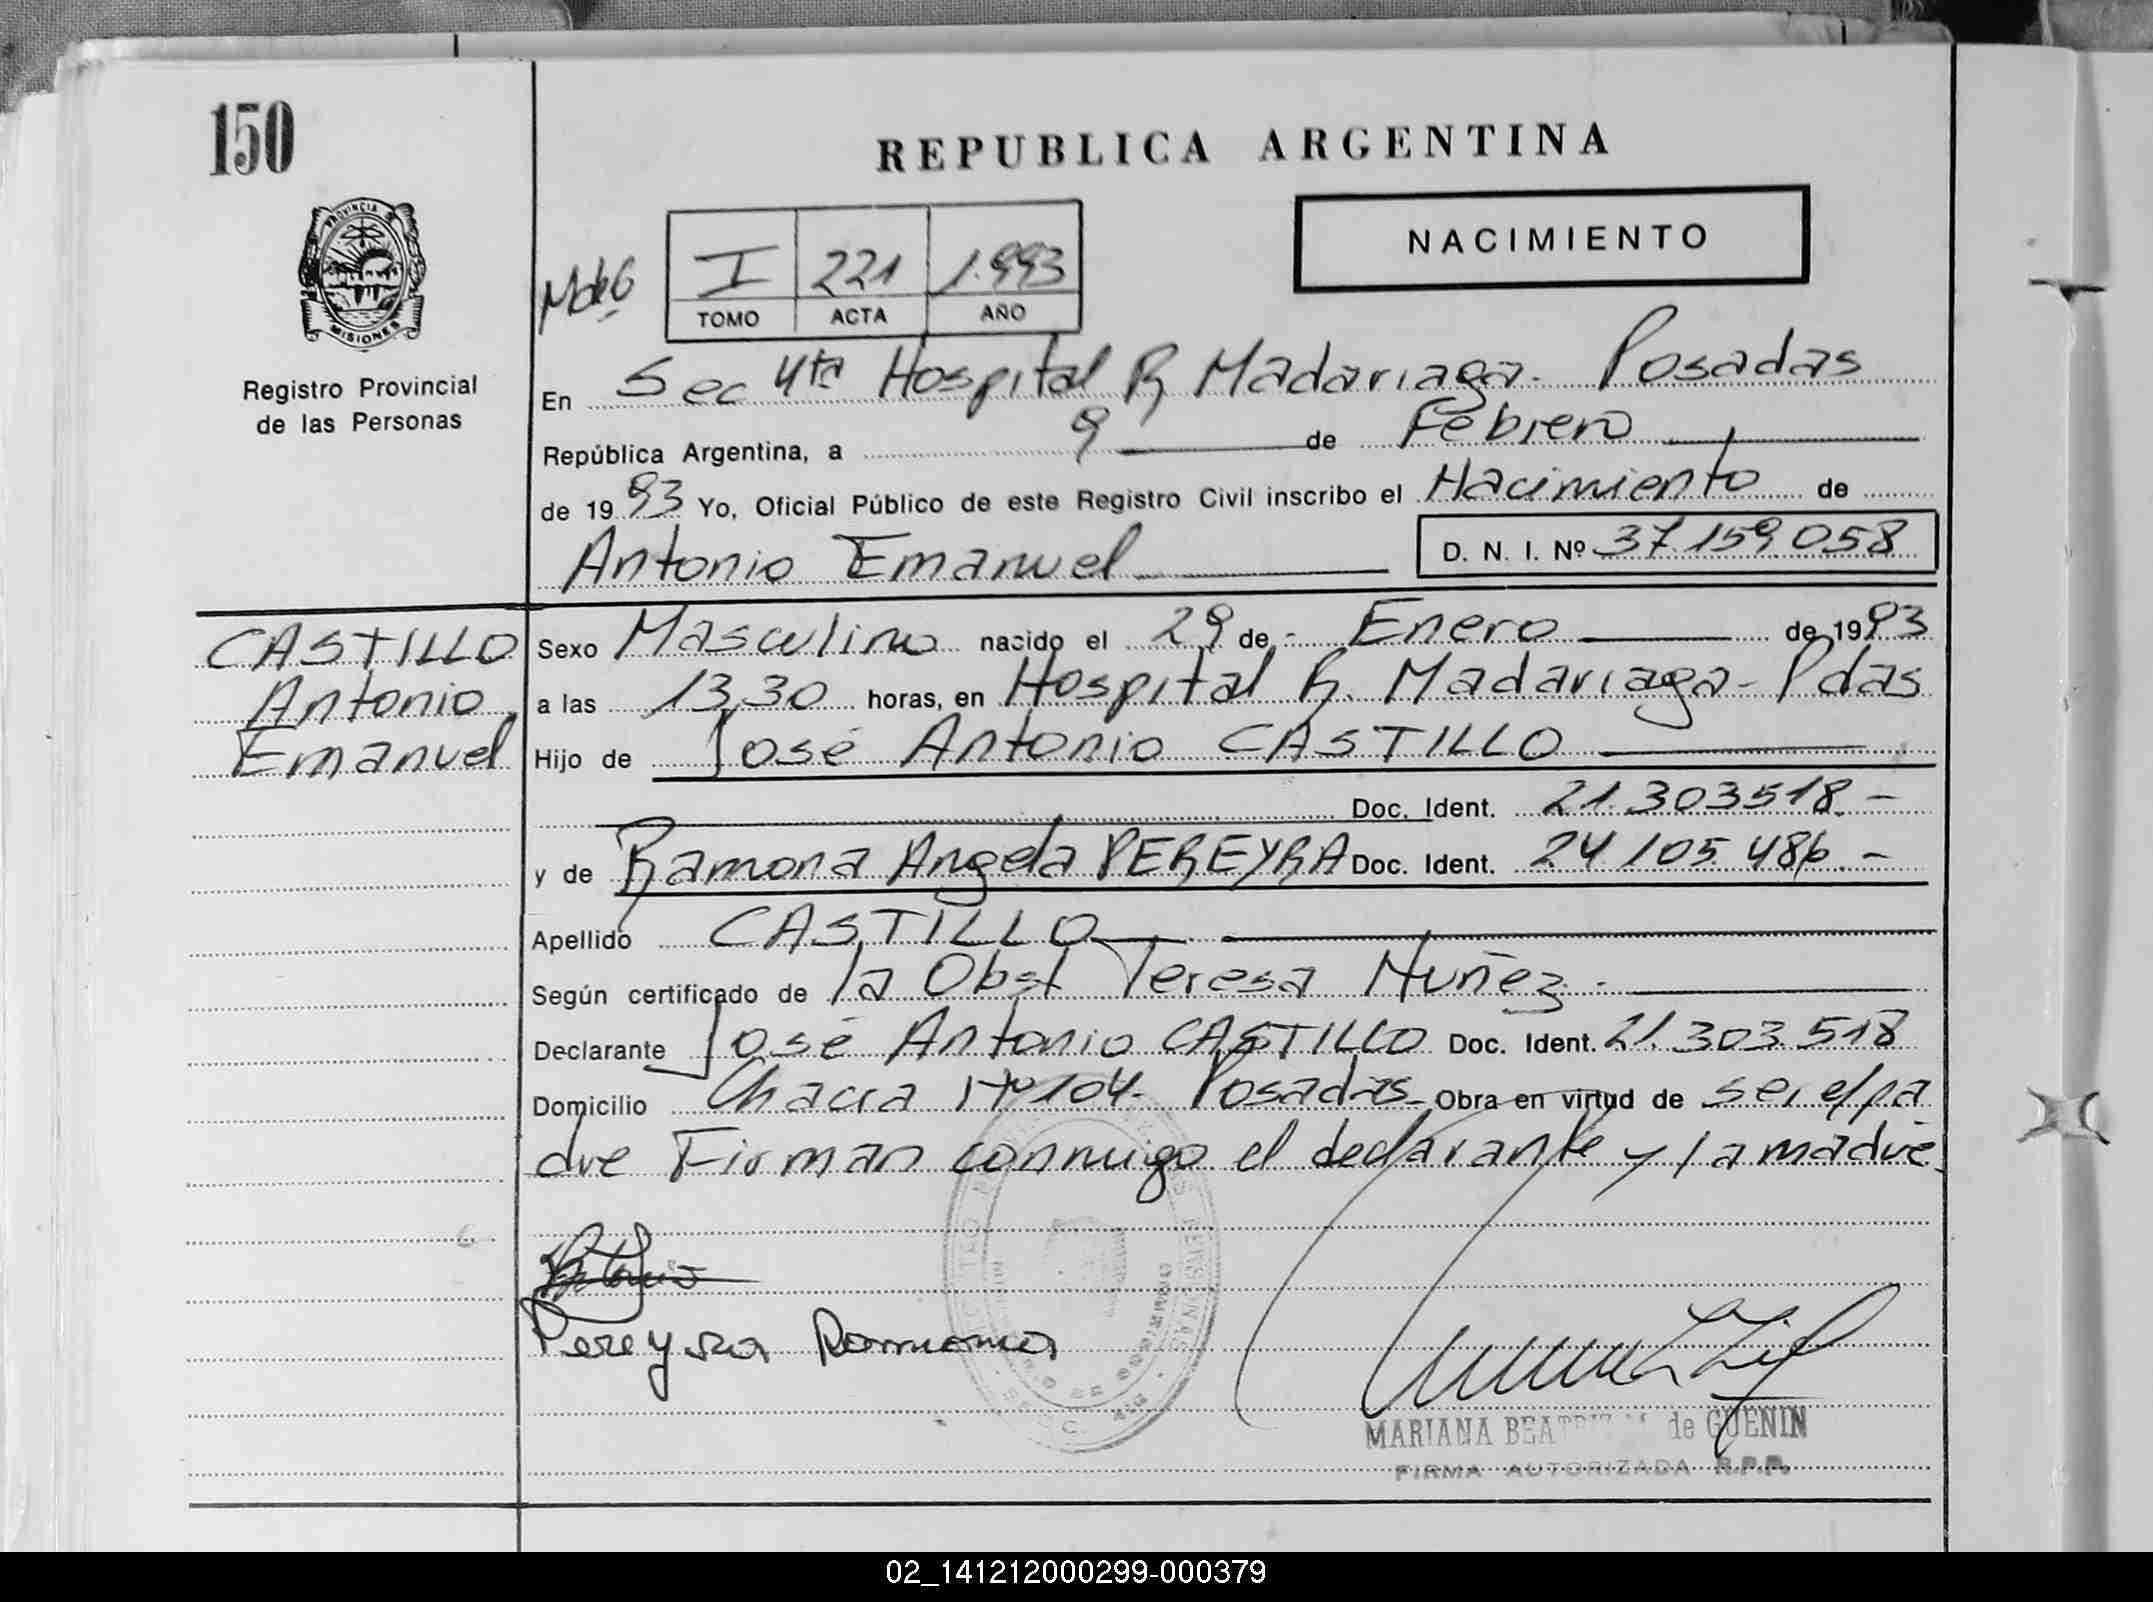 150
REPUBLICA ARGENTINA
NACIMIENTO
PROVINCIA D
MISIONES
I 221 1.993
TOMO ACTA AÑO
Registro Provincial
de las Personas
En Sec 4ta Hospital R Madariaga. Posadas
República Argentina, a 9 de Febrero
de 1993 Yo, Oficial Público de este Registro Civil inscribo el Nacimiento de
Antonio Emanuel D. N. I. Nº 37.159.058
CASTILLO
Antonio
Emanuel
Sexo Masculino nacido el 29 de - Enero de 1993
a las 13,30 horas, en Hospital R. Madariaga - Pdas
Hijo de José Antonio CASTILLO
Doc. Ident. 21.303518.-
y de Ramona Angela PEREYRA Doc. Ident. 24.105.486.-
Apellido CASTILLO
Según certificado de la Obst Teresa Nuñez.
Declarante José Antonio CASTILLO Doc. Ident. 21.303.518
Domicilio Chacra Nº 104. Posadas Obra en virtud de ser el pa
dre Firman conmigo el declarante y la madre.
Pereyra Ramona
MARIANA de GUENIN
FIRMA AUTORIZADA R.P.P.
02_141212000299-000379